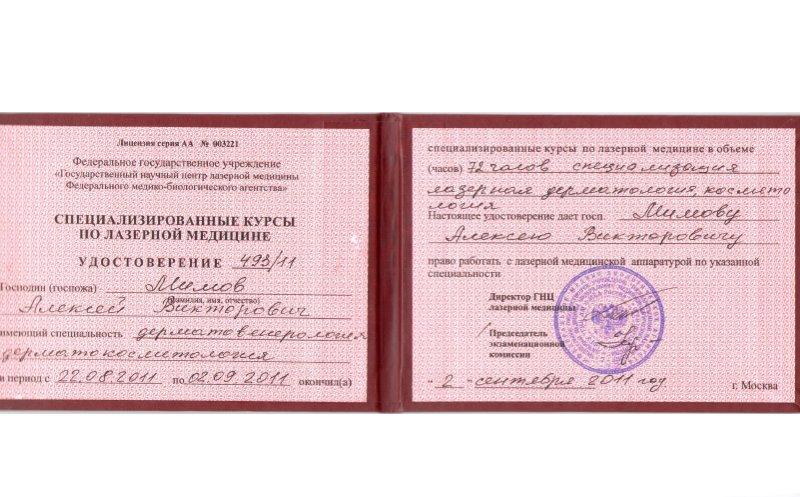 Лицензия серия АА № 003221
Федеральное государственное учреждение
«Государственный научный центр лазерной медицины
Федерального медико-биологического агентства»
СПЕЦИАЛИЗИРОВАННЫЕ КУРСЫ
ПО ЛАЗЕРНОЙ МЕДИЦИНЕ
УДОСТОВЕРЕНИЕ 493/11
Господин (госпожа) Мимов
(фамилия, имя, отчество)
Алексей Викторович
имеющий специальность дерматовенерология
дерматокосмитология
в период с 22.08.2011 по 02.09.2011 окончил(а)
специализированные курсы по лазерной медицине в объеме
(часов) 72 часов специализация
лазерная дерматология, космето
логия
Настоящее удостоверение дает госп. Мимову
Алексею Викторовичу
право работать с лазерной медицинской аппаратурой по указанной
специальности
Директор ГНЦ
лазерной медицины
Председатель
экзаменационной
комиссии
"2" сентября 2011 год
г. Москва